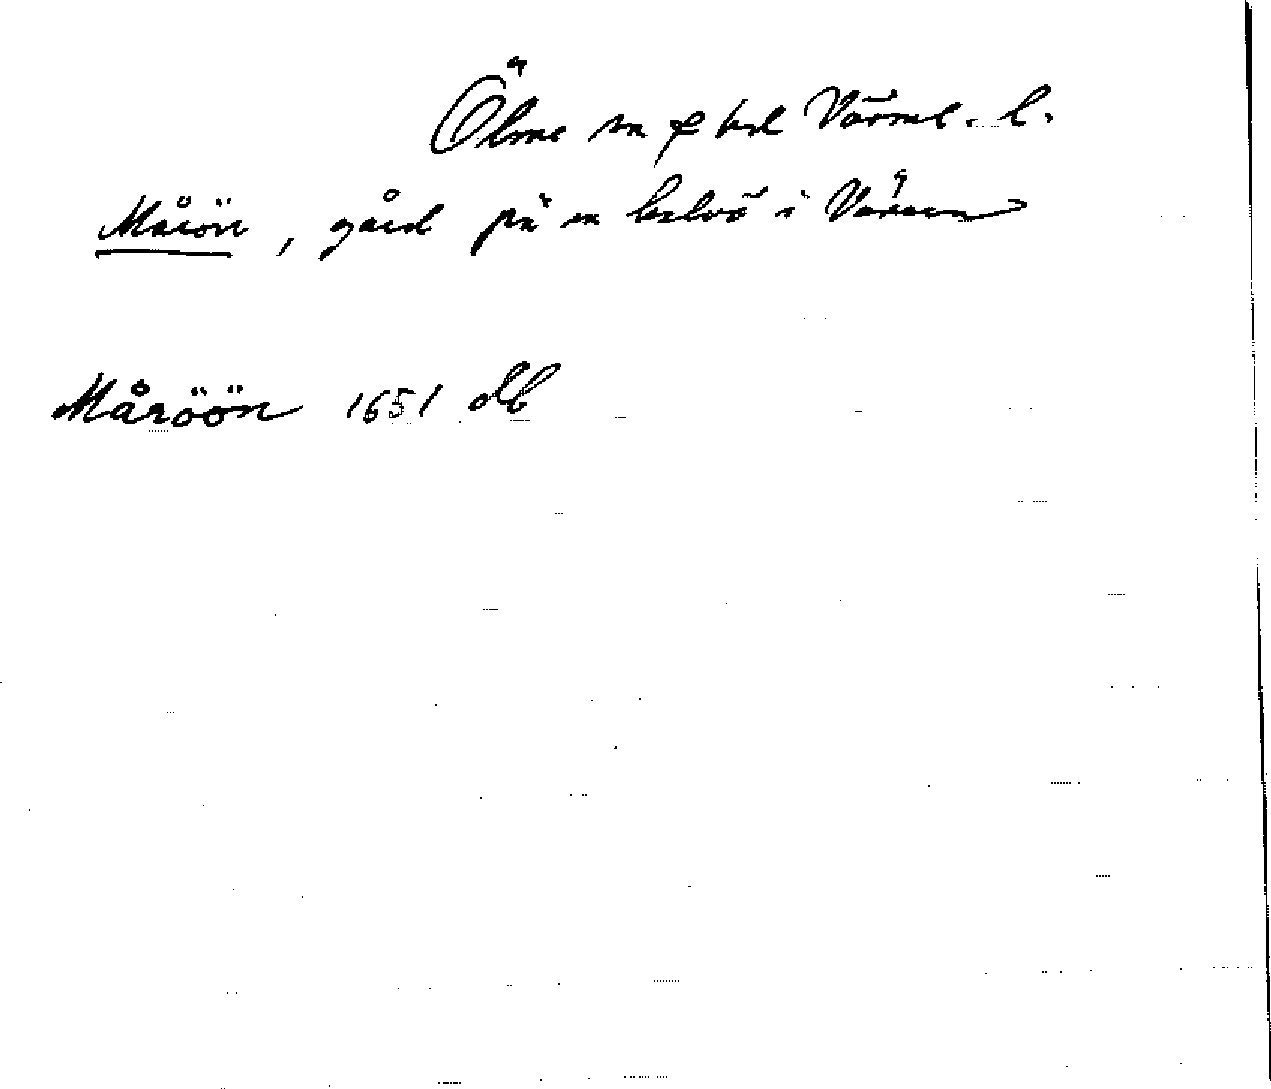 Ölme sn o hd Värml. l.
Måön, gård på en halvö i Vänern
Måröön 1651 db